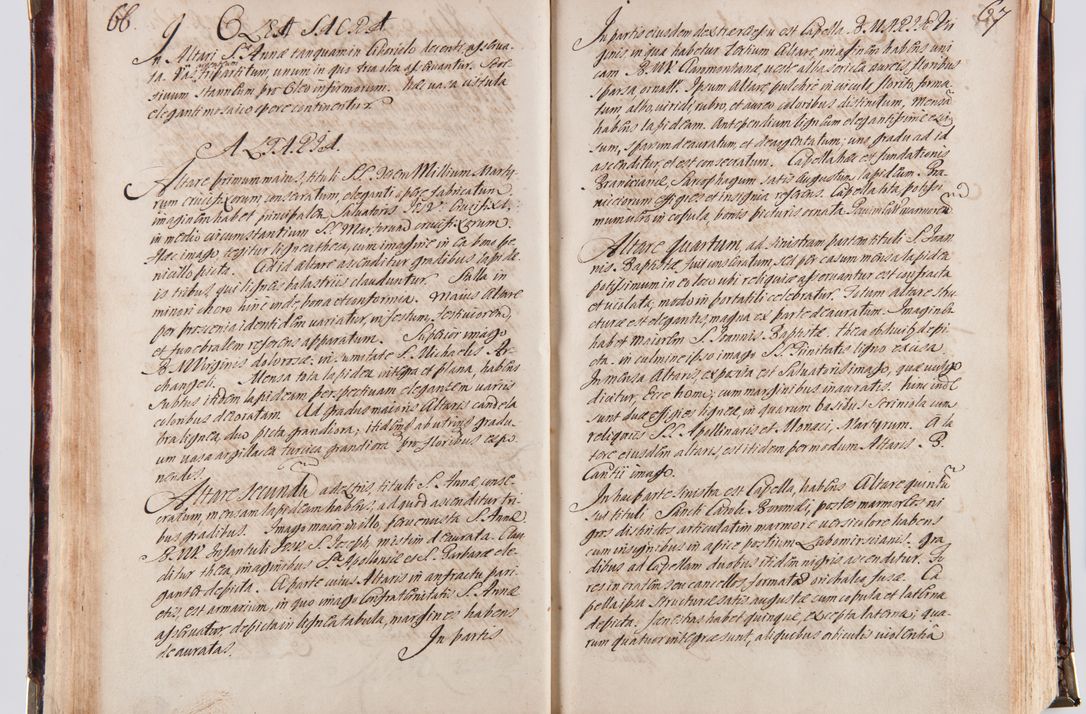 66.
OLEA SACRA
In Altari S. Annæ tanquam in Ciboriolo decenti, asserva-
ta. Vas argenteum tripartitum, unum in quo tria olea asservantur.
stivum stanneum pro Oleo infirmorum. Hæc vasa cistula
eleganti mosaico opere continentur.
ALTARIA.
Altare primum maius, tituli SS. Decem Millium Marty-
rum crucifixorum, consecratum, eleganti opere fabricatum
imaginem habet principalem Salvatoris Iesu Crucifixi,
in medio circumstantium SS. Martyrum crucifixorum.
Hæc imago tegitur lignea theca, cum imagine in ea bene pe-
nicillo picta. Ad id altare ascenditur gradibus lapide-
is tribus, qui ligneis balastriis clauduntur. Stalla in
minori choro hinc inde bona et conformia. Maius Altare
per proscenia identidem variatur, in festum, festiviorem
et funebralem referens apparatum. Superior imago
B. M. Virginis dolorosæ; in sumitate S. Michaelis Ar-
changeli. Mensa tota lapidea integra et plana, habens
subtus itidem lapideam perspectivam elegantem variis
coloribus decoratam. Ad gradus maioris Altaris candela
bra lignea, duo picta grandiora; itidem ab utrinq gradu-
um vasa argillacea turcica grandiora pro floribus expo
nendis.
Altare secundum a dextris, tituli S. Annæ conse-
cratum, mensam lapideam habens, ad quod ascenditur tri
bus gradibus. Imago maior in illo, parvenusta S. Annæ
B. M. V. Infantuli Iesu S. Joseph, mistim deaurata. Clau
ditur theca imaginibus S. Apoloniæ et S. Barbaræ ele-
ganter depicta. A parte cuius Altaris in anfractu pari-
etis, est armarium, in quo imago Confraternitatis S. Annæ
asservatur, depicta in lignea tabula, margines habens
deauratas. In partis
67
In partis eiusdem dextræ egressu est Capella B. MARIÆ Vir
ginis in qua habetur tertium Altare, imaginem habens uni
cam B. M. V. Claromontanæ, veste alba sericea aureis floribus
sparsa ornatam. Ipsum Altare pulchre in circule florito, forma
tum albo, viridi, rubro, et aureo coloribus distinctum, Mensam
habens lapideam. Antependium ligneum elegantissime exci
sum, sparsim deauratum, et deargentatum; uno gradu ad id
ascenditur, et est consecratum. Capella hæc est fundationis
Branicianæ, Sarcophagum satis augustum lapideum Bra-
niciorum effigies et insignia referens. Capella ista potiss-
mum intro in copula, bonis picturis ornata.
Altare quartum, ad sinistram partem tituli S. Joan
nis Baptistæ, fuit consecratum, sed per casum mensa lapidea
potissimum in eo loco ubi reliquiæ asservantur est confracta
et violata, modo in portatili celebratur. Totum altare stru
cturæ est elegantis, magna ex parte deauratum. Imaginem
habet maiorem S. Joannis Baptistæ. Theca obducitur depi
cta. in culmine ipso imago SS. Trinitatis ligno excisa.
In mensa Altaris, exposita est Salvatoris imago, quæ vulgo
dicitur, Ecce homo; cum marginibus inauratis. hinc inde
sunt duæ effigies ligneæ, in quarum basibus scriniola cum
reliquiis SS. Apollinaris et Monaci, Martyrum. A la
tere eiusdem altaris, est itidem per modum Altaris B.
Cantii imago.
In hac parte sinistra est Capella, habens Altare quintum
sub tituli Sanctæ Romæ, postes marmoreos ni
gros distinctos articulatim marmore versicolore habens
cum insignibus in apice postium Lubomirscianis. Gra
dibus ad Capellam duobus itidem nigris ascenditur. Fo
res in cratem seu cancellos, formatæ orichalco, fusæ. Ca
pella ipsa structuræ satis augustæ cum copula et laterna
depicta. fenestras habet quinque, excepta laterna; qua-
rum quatuor integræ sunt, aliquibus orbiculis violentia